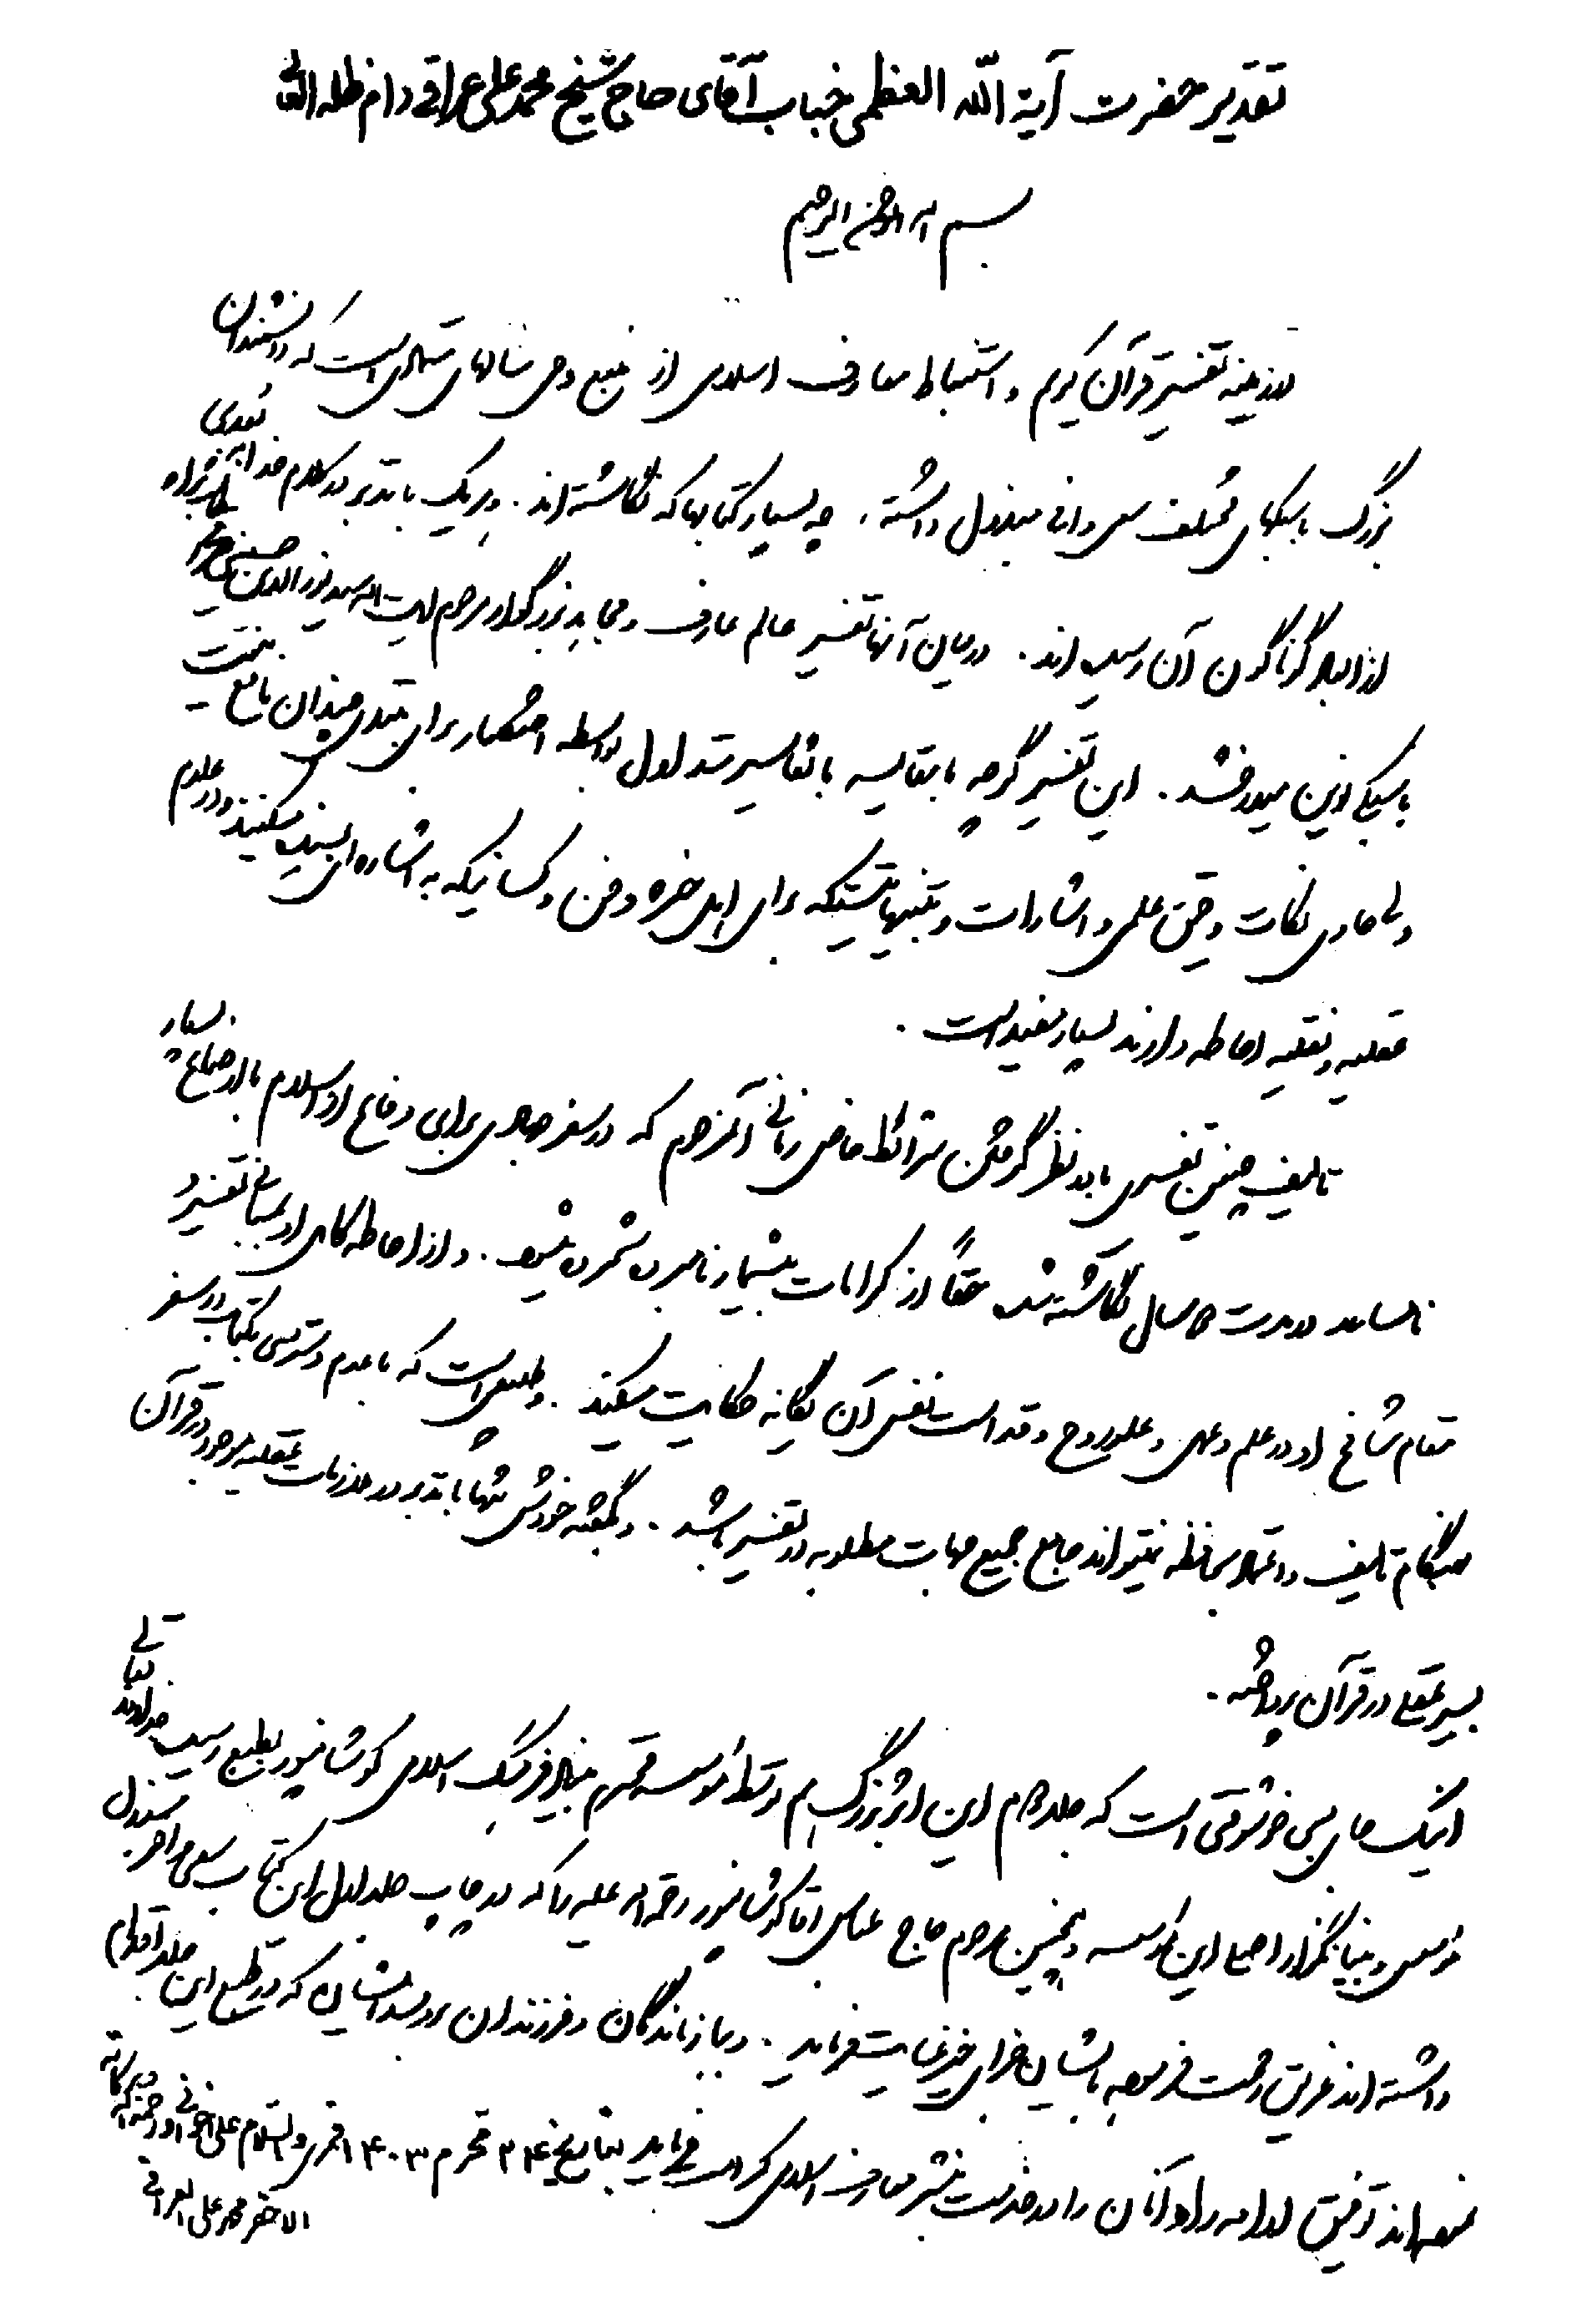 تقدیر حضرت آیة الله العظمی جناب آقای حاج شیخ محمد علی عراقی دام ظله العالی
بسم الله الرحمن الرحیم
در زمینه تفسیر قرآن کریم و استنباط معارف اسلامی از منبع وحی سالهای است که دانشمندان
بزرگ با سبکهای مختلف سعی وافی مبذول داشته، چه بسیار کتابها که نگاشته‌اند. و هریک با تدبر در کلام خدا به
از ابعاد گوناگون آن رسیده‌اند. در میان آنها تفسیر عالم عارف و مجاهد بزرگوار مرحوم آیت الله سید نورالدین حسینی عراقی
با سبکی نوین میدرخشد. این تفسیر گرچه با مقایسه با تفاسیر متداول بواسطه اختصار برای مبتدی چندان نافع نیست
ولی حاوی نکات دقیق علمی و اشارات و تنبیهاتیستکه برای اهل خبره و فن و کسانیکه به اشاره‌ای بسنده میکنند و در علوم
عقلیه و نقلیه احاطه دارند بسیار مفید است.
تالیف چنین تفسیری با در نظر گرفتن شرائط خاص زمانی آنمرحوم که در سفر جهادی برای دفاع از اسلام با اوضاع بسیار
نامساعد در مدت ۵ سال نگاشته شده حقاً از کرامات بیشمار نامبرده شمرده میشود. و از احاطه کامل او بمبانی تفسیر و
مقام شامخ او در علم و عمل و علو روح و قداست نفس آن یگانه حکایت میکند. و طبیعی است که با عدم دسترسی بکتاب در سفر
هنگام تالیف و اعتماد بحافظه نمیتواند جامع جمیع جهات مطلوبه در تفسیر باشد. و بگفته خودش تنها با تدبر در ملازمات عقلیه موجود در قرآن
بسیر عقلی در قرآن پرداخته.
اینک جای بسی خوشوقتی است که جلد دوم این اثر بزرگ هم توسط مؤسسه محترم بنیاد فرهنگ اسلامی کوشانپور بطبع رسیده خداوند تعالی
مؤسس و بنیانگذار اصلی این مؤسسه و همچنین مرحوم حاج عباس آقا کوشانپور رحمه الله علیه را که در چاپ جلد اول این کتاب سعی وافر مبذول
داشته‌اند غریق رحمت فرموده بایشان جزای خیر عنایت فرماید. و بازماندگان و فرزندان برومند ایشان که در طبع این جلد اقدام
نموده‌اند توفیق ادامه راه آنان را در خدمت بنشر معارف اسلامی کرامت فرماید بتاریخ ۲۴ محرم ۱۴۰۳ قمری والسلام علی اخوانی و رحمة الله وبرکاته
الاحقر محمد علی العراقی